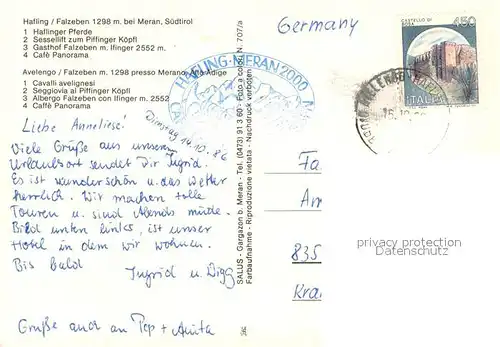 Hafling / Falzeben 1298 m. bei Meran, Südtirol
1 Haflinger Pferde
2 Sessellift zum Piffinger Köpfl
3 Gasthof Falzeben m. Ifinger 2552 m.
4 Cafè Panorama
Avelengo / Falzeben m. 1298 presso Merano, Alto Adige
1 Cavalli avelignesi
2 Seggiovia al Piffinger Köpfl
3 Albergo Falzeben con Ifinger m. 2552
4 Caffè Panorama
HAFLING-MERAN 2000
Germany
CASTELLO DI
450
ITALIA
Dienstag 14.10.86
Liebe Anneliese!
Viele Grüße aus unserem
Urlaubsort sendet Dir Ingrid.
Es ist wunderschön u. das Wetter
herrlich. Wir machen tolle
Touren u. sind Abends müde.
Bild unten links, ist unser
Hotel in dem wir wohnen.
Bis bald
Ingrid u. Digg
Grüße auch an Pep + Anita
SALUS - Gargazon b. Meran - Tel. (0473) 91 3 60 - Foto c. N. 707/a
Farbaufnahme - Riproduzione vietata - Nachdruck verboten
Fa
Am
835
Kra
privacy protection
Datenschutz